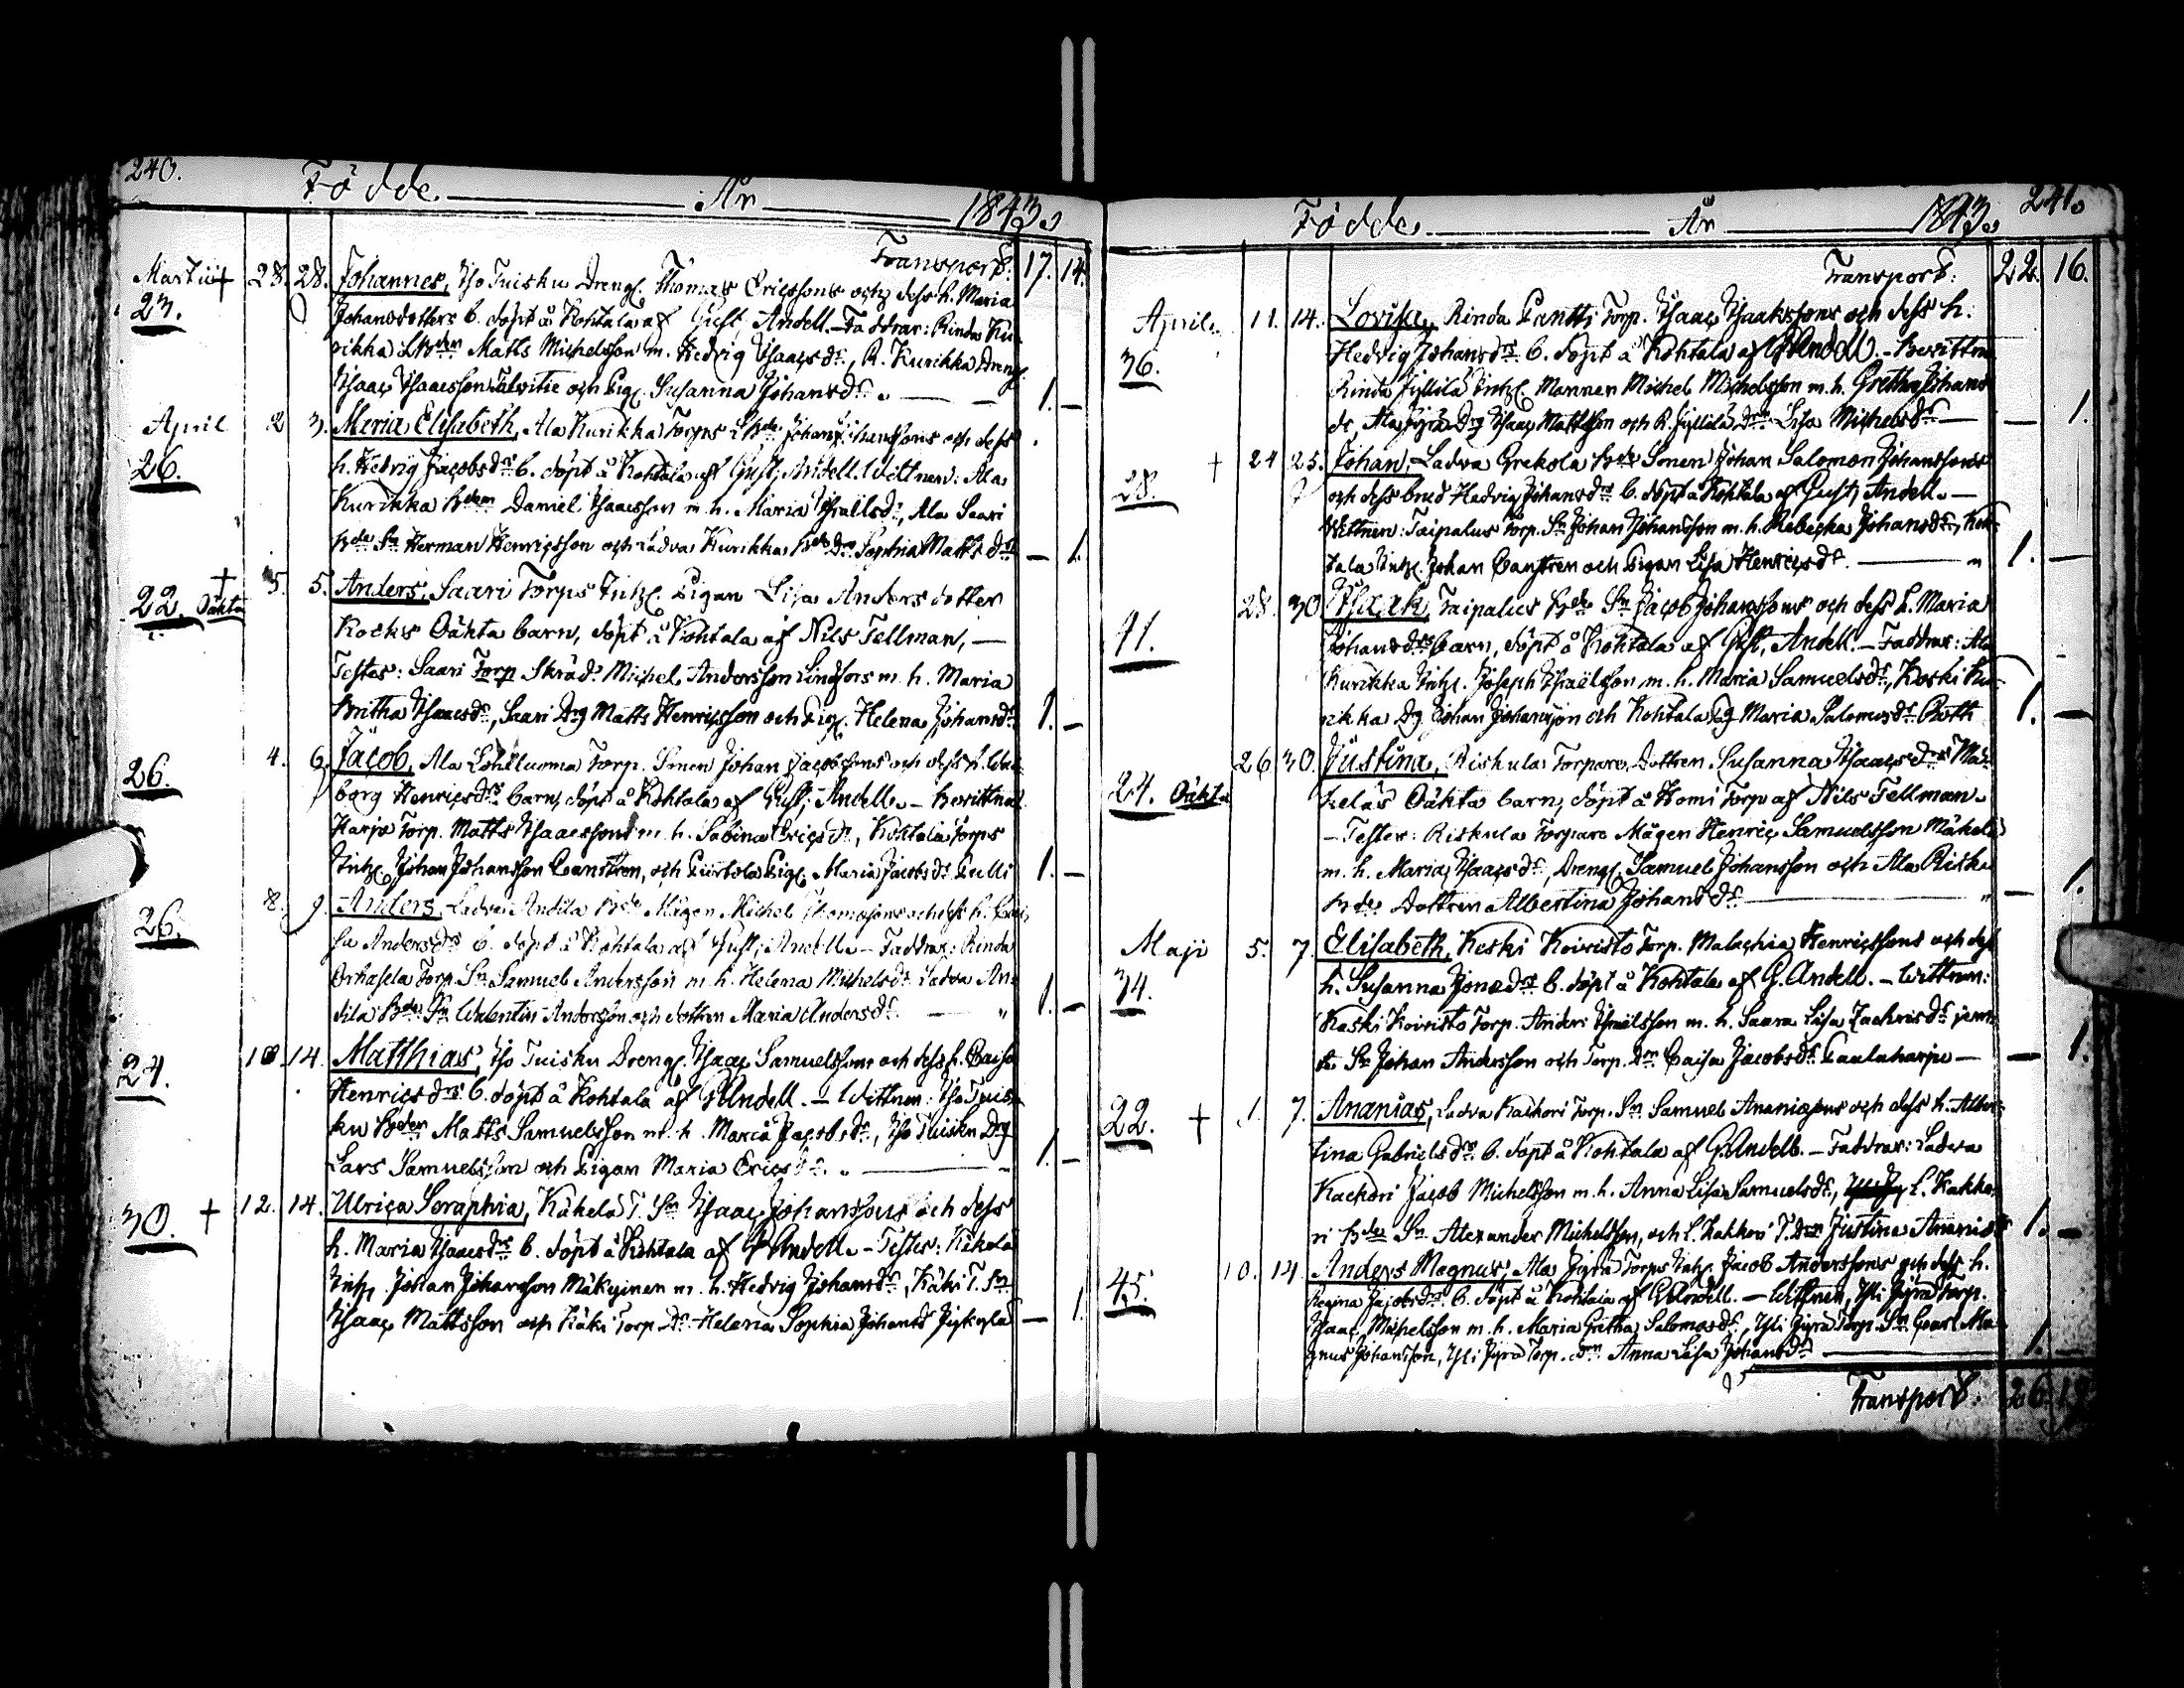 240. Födde År 1843.
Transport: 17. 14.
Martii + 28. 28. Johannes, Iso Tuisku Dreng. Thomas Ericssons och dess h. Maria
23. Johansdotters b. döpt å Kohtala af Gust. Andell. – Faddrar: Rinda Ku-
rikka Matts Michelsson m. Hedvig Isaacsdr, R. Kurikka Dreng.
Isaac Isaacsson Talvitie och Pig. Susanna Johansdr. 1. –
April 2 3. Maria Elisabeth, Ala Kurikka Torps Johan Johanssons och dess
26. h. Hedvig Jacobsdrs b. döpt å Kohtala af Gust. Andell. Wittnen: Ala
Kurikka Daniel Isaacsson m. h. Maria Israelsdr, Ala Saari
Bde Sn Herman Henricsson och Ladva Kurikka Bde Dr Sophia Mattsdr – 1.
+ 5. 5. Anders, Saari Torps Inhs. Pigan Lisa Andersdotter
22. Oäkta Kockis Oäkta barn, döpt å Kohtala af Nils Tellman, –
Testes: Saari Torp Skräd. Michel Andersson Lindfors m. h. Maria
Britha Isaacsdr, Saari Drg Matts Henricsson och Pig. Helena Johansdr 1. –
26. 4. 6. Jacob, Ala Torp. Sonen Johan Jacobssons och dess h. Wal-
borg Henricsdrs barn, döpt å Kohtala af Gust. Andell. – Bevittna
Harju Torp. Matts Isaacsson m. h. Sabina Ericsdr, Kohtala Torps
Inhs. Johan Johansson Canstren, och Piirtola Pig. Maria Jacobsdr Pulli 1. –
8. 9. Anders, Ladva Andila Bde Mågen Michel Thomassons och dess h. Cai-
26. sa Andersdrs b. döpt å Kohtala af Gust. Andell. – Faddrar: Rinda
Orhasela Torp. Sn Samuel Andersson m. h. Helena Michelsdr Ladva An-
dila Bde Sn Valentin Andersson och dottren Maria Andersdr. 1. –
24. 10 14. Matthias, Iso Tuisku Dreng. Isaac Samuelssons och dess h. Caisa
Henricsdrs b. döpt å Kohtala af G Andell. – Wittnen: Iso Tuis-
ku Bden Matts Samuelsson m. h. Maria Jacobsdr, Iso Tuisku Drg
Lars Samuelsson och Pigan Maria Ericsdr. 1. –
30. + 12. 14. Ulrica Seraphia, Käkelä T. Sn Isaac Johanssons och dess
h. Maria Isaacsdrs b. döpt å Kohtala af G Andell. – Testes: Kikola
Inhs. Johan Johansson Mäkynen m. h. Hedvig Johansdr, Käki T. Sn
Isaac Mattsson och Käki Torp. Dr. Helena Sophia Johansd Jykylä – 1.
Födde År 1843. 241.
Transport: 22. 16.
April 11. 14. Lovisa, Rinda Pantti Torp. Isaac Isaakssons och dess h.
36. Hedvig Johansdrs b. döpt å Kohtala af G Andell. – Bevittna
Rinda Jyllilä Inhs. Mannen Michel Michelsson m. h. Gretha Johans
dr, Ala Jyrä Drg Isaac Mattsson och R. Jyllilä Drn Lisa Michelsdr – 1.
28. + 24 25. Johan, Ladva Grekola Bde Sonen Johan Salomon Johanssons
och dess brud Hedvig Johansdrs b. döpt å Kohtala af Gust. Andell. –
Wittnen: Taipalus Torp. Sn Johan Johansson m. h. Rebecka Johansdr, Koh-
tala Inhs. Johan Canstren och Pigan Lisa Henricsdr. 1. –
41. 28. 30 Isaak, Taipalus Bde Sn Jacob Johanssons och dess h. Maria
Johansdrs barn, döpt å Kohtala af Gust. Andell. – Faddrar: Ala
Kurikka Inhs. Joseph Israelsson m. h. Maria Samuelsdr, Koski Ku-
rikka Dg Johan Johansson och Kohtala Pg Maria Salomosdr Roth 1. –
26 30. Justina, Riskula Torpare Dottren Susanna Isaacsdrs Mä-
24. Oäkta keläs Oäkta barn, döpt å Homi Torp af Nils Tellman.
– Testes: Riskula Torpare Mågen Henric Samuelsson Mäkelä
m. h. Maria Isaacsdr, Dreng. Samuel Johansson och Ala Risku
Bde Dottren Albertina Johansdr – 1.
Maji 5. 7. Elisabeth, Keski Koivisto Torp. Malachia Henricssons och dess
34. h. Susanna Jonædrs b. döpt å Kohtala af G. Andell. – Wittnen:
Keski Koivisto Torp. Anders Ismelsson m. h. Saara Lisa Zachrisdr jemn-
te Sn Johan Andersson och Torp. Drn Caisa Jacobsdr Paaluharju – 1.
22. + 1. 7. Ananias, Ladva Kackori Torp. Sn Samuel Ananiæsons och dess h. Alber-
tina Gabrielsdrs b. döpt å Kohtala af G. Andell. – Faddrar: Ladva
Kackori Jacob Michelsson m. h. Anna Lisa Samuelsdr, L. Kakko-
ri Bde Sn Alexander Michelsson, och L. Kakkori T. Drn Justina Ananiæd 1. –
45. 10. 14. Anders Magnus, Ala Jyrä Torps Inhs. Jacob Anderssons och dess h.
Regina Jacobsdrs b. döpt å Kohtala af G Andell. – Wittnen, Yli Jyrä Torp.
Isaac Michelsson m. h. Maria Gretha Salomosdr, Yli Jyrä Torp. Sn Carl Ma-
gnus Johansson, Yli Jyrä Torp. Drn Anna Lisa Johansdr 1. –
Transport: 26. 19.